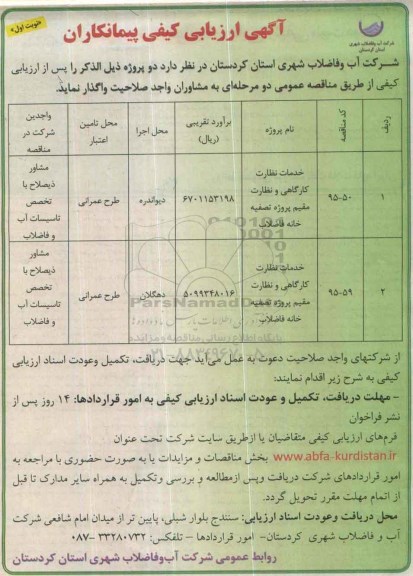 «نوبت اول»
آگهی ارزیابی کیفی پیمانکاران
شرکت آب وفاضلاب شهری
استان کردستان
شرکت آب وفاضلاب شهری استان کردستان در نظر دارد دو پروژه ذیل الذکر را پس از ارزیابی
کیفی از طریق مناقصه عمومی دو مرحله‌ای به مشاوران واجد صلاحیت واگذار نماید.
ردیف | کد مناقصه | نام پروژه | برآورد تقریبی (ریال) | محل اجرا | محل تامین اعتبار | واجدین شرکت در مناقصه
۱ | ۹۵-۵۰ | خدمات نظارت کارگاهی و نظارت مقیم پروژه تصفیه خانه فاضلاب | ۶۷۰۱۱۵۳۱۹۸ | دیواندره | طرح عمرانی | مشاور ذیصلاح با تخصص تاسیسات آب و فاضلاب
۲ | ۹۵-۵۹ | خدمات نظارت کارگاهی و نظارت مقیم پروژه تصفیه خانه فاضلاب | ۵۰۹۹۳۴۸۰۱۶ | دهگلان | طرح عمرانی | مشاور ذیصلاح با تخصص تاسیسات آب و فاضلاب
از شرکتهای واجد صلاحیت دعوت به عمل می‌آید جهت دریافت، تکمیل وعودت اسناد ارزیابی
کیفی به شرح زیر اقدام نمایند:
- مهلت دریافت، تکمیل و عودت اسناد ارزیابی کیفی به امور قراردادها: ۱۴ روز پس از
نشر فراخوان
فرم‌های ارزیابی کیفی متقاضیان یا ازطریق سایت شرکت تحت عنوان
www.abfa-kurdistan.ir بخش مناقصات و مزایدات یا به صورت حضوری با مراجعه به
امور قراردادهای شرکت دریافت وپس ازمطالعه و بررسی وتکمیل به همراه سایر مدارک تا قبل
از اتمام مهلت مقرر تحویل گردد.
محل دریافت وعودت اسناد ارزیابی: سنندج بلوار شبلی، پایین تر از میدان امام شافعی شرکت
آب و فاضلاب شهری کردستان- امور قراردادها – تلفکس: ۳۳۲۸۰۷۳۲ -۰۸۷
روابط عمومی شرکت آب‌وفاضلاب شهری استان کردستان